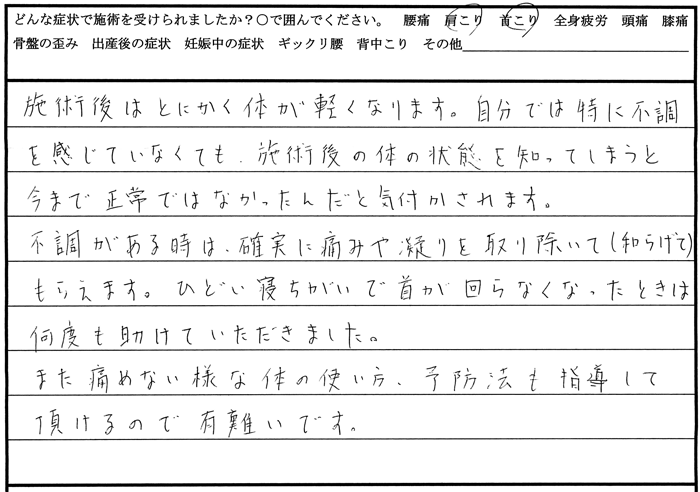 どんな症状で施術を受けられましたか？○で囲んでください。　腰痛　肩こり　首こり　全身疲労　頭痛　膝痛
骨盤の歪み　出産後の症状　妊娠中の症状　ギックリ腰　背中こり　その他
施術後はとにかく体が軽くなります。自分では特に不調
を感じていなくても、施術後の体の状態を知ってしまうと
今まで正常ではなかったんだと気付かされます。
不調がある時は、確実に痛みや凝りを取り除いて(和らげて)
もらえます。ひどい寝ちがいで首が回らなくなったときは
何度も助けていただきました。
また痛めない様な体の使い方、予防法も指導して
頂けるので有難いです。